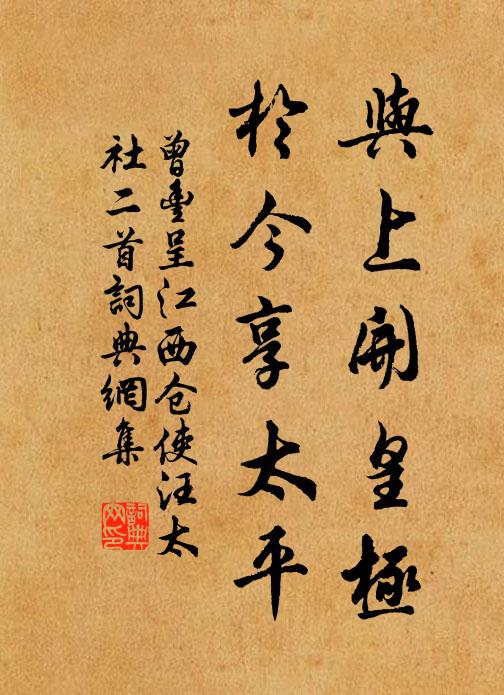 與上開皇極
於今享太平
曾豐呈江西仓使汪太
社二首詞典網集
詞典網印